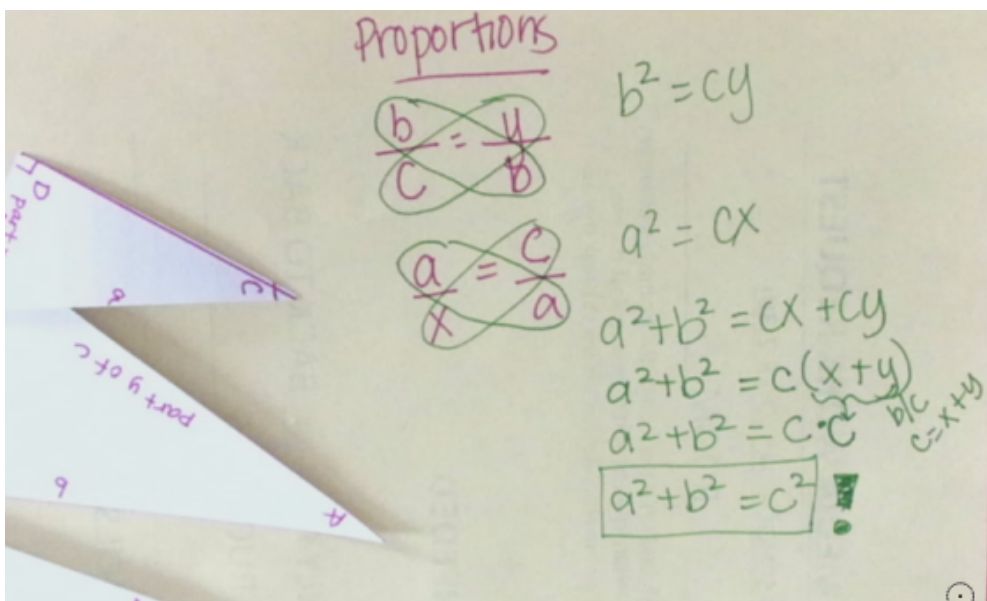 Proportions
b/c = y/b
b² = cy
a/x = c/a
a² = cx
a²+b² = cx+cy
a²+b² = c(x+y)
b/c
c=x+y
a²+b² = c·c
a²+b² = c²!
D
part
C
a
part y of c
b
A